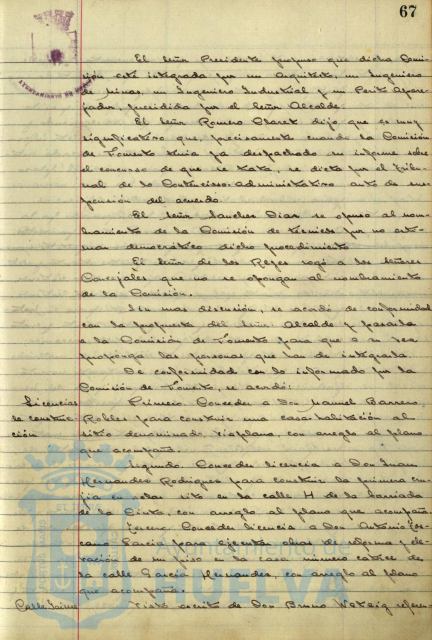 67
El Señor Presidente propuso que dicha Comi-
sión esté integrada por un Arquitecto, un Ingeniero
de Minas, un Ingeniero Industrial y un Perito Apare-
jador, presidida por el Señor Alcalde.
El Señor Romero Claret dijo que es muy
significativo que, precisamente cuando la Comisión
de Fomento tenía ya despachado su informe sobre
el concurso de que se trata, se dicta por el Tribu-
nal de lo Contencioso-administrativo auto de sus-
pensión del acuerdo.
El Señor Sanchez Diaz se opuso al nom-
bramiento de la Comisión de técnicos por no esti-
mar democrático dicho procedimiento.
El Señor de los Reyes rogó a los Señores
Concejales que no se opongan al nombramiento
de la Comisión.
Sin mas discusión, se acordó de conformidad
con la propuesta del Señor Alcalde y pasarla
a la Comisión de Fomento para que a su vez
proponga las personas que han de integrarla.
De conformidad con lo informado por la
Comisión de Fomento, se acordó:
Licencias
de construc-
ción
Primero. Conceder a Don Manuel Barrero
Robles para construir una casa-habitación al
sitio denominado, con arreglo al plano
que acompaña.
Segundo. Conceder licencia a Don Juan
Hernandez Rodriguez para construir la primera cru-
jia en solar sito en la calle H de la Barriada
de la Cinta, con arreglo al plano que acompaña.
Tercero. Conceder licencia a Don Antonio
Garcia para ejecutar obras de reforma y ele-
vación de un piso en la casa número catorce de
la calle Garcia Hernandez, con arreglo al plano
que acompaña.
Calle Jaime
Visto escrito de Don Bruno Wetzig referen-
AYUNTAMIENTO DE HUELVA
Ayuntamiento de
HUELVA